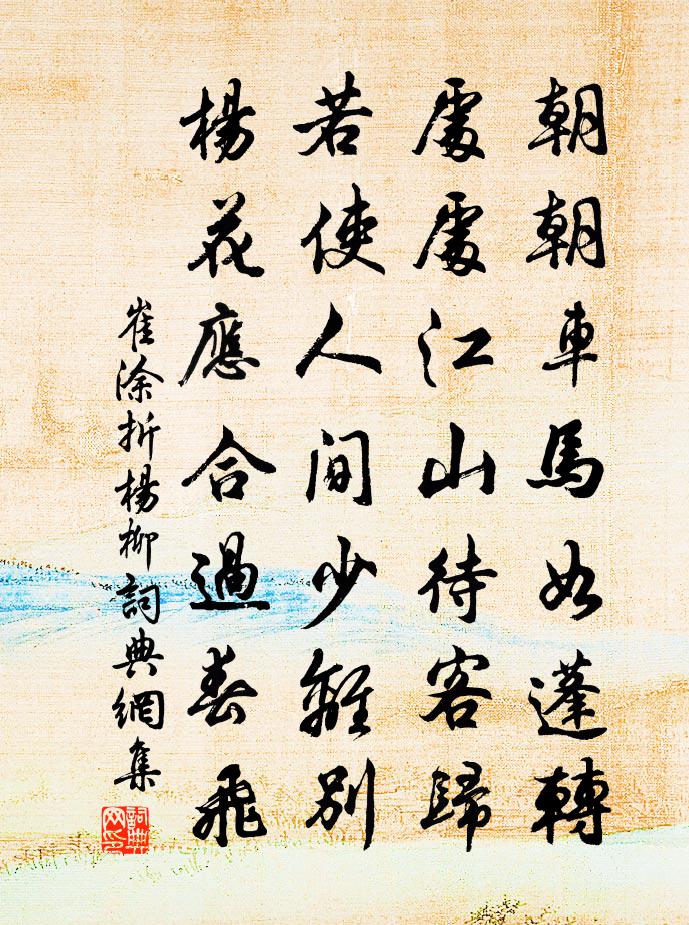 朝朝車馬如蓬轉
處處江山待客歸
若使人間少離別
楊花應合過春飛
崔涂折楊柳詞典網集